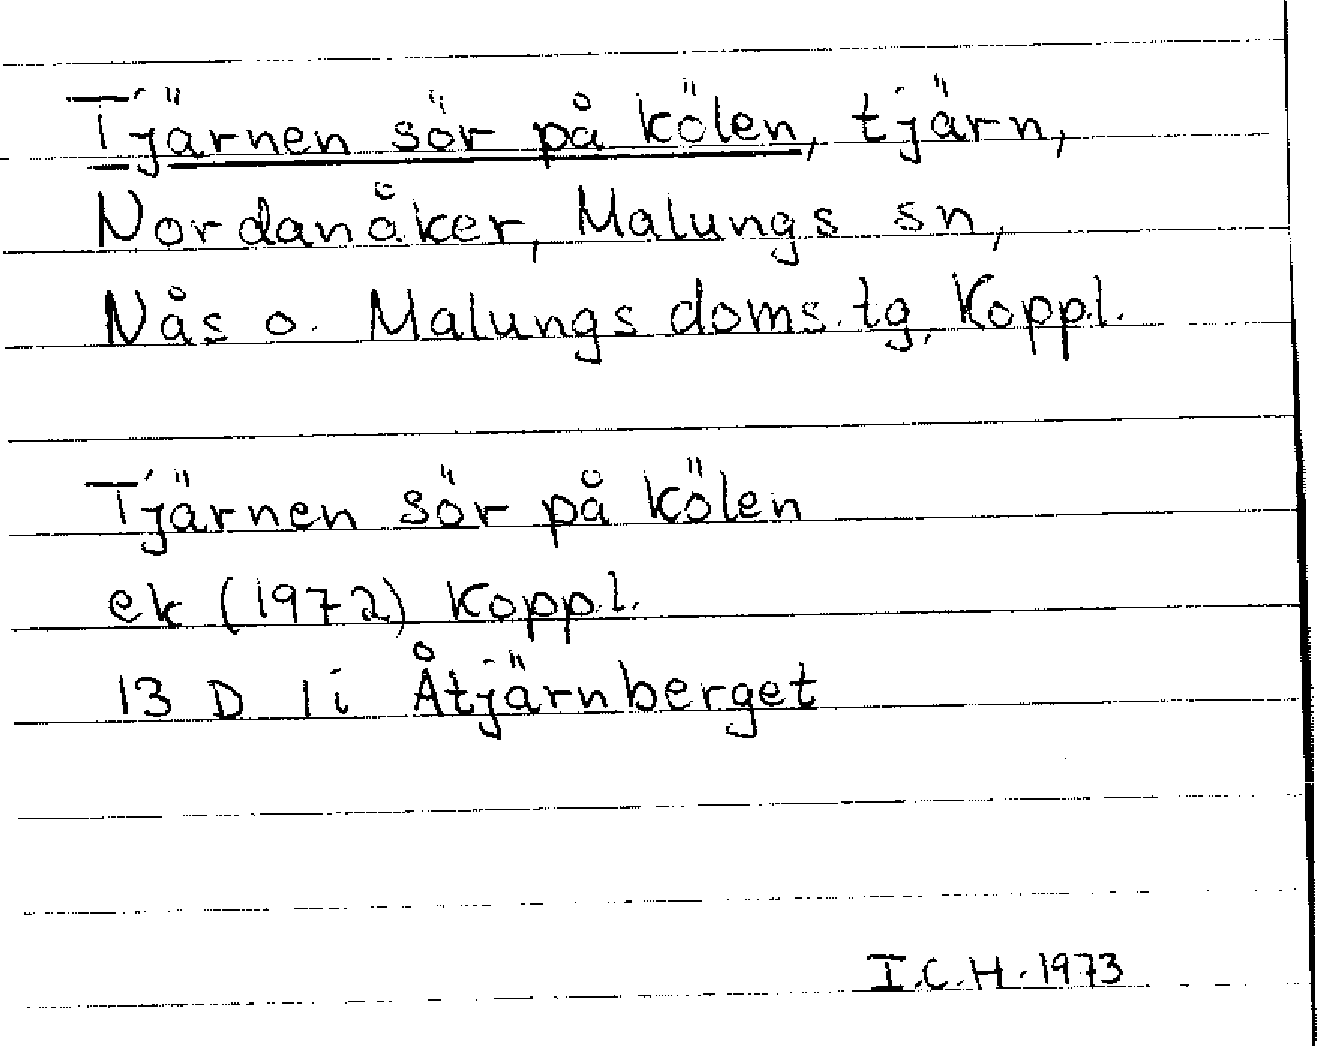 Tjärnen sör på kölen, tjärn,
Nordanåker, Malungs sn,
Nås o. Malungs doms.tg, Koppl.
Tjärnen sör på kölen
ek (1972) Koppl.
13 D 1i Åtjärnberget
I.C.H. 1973